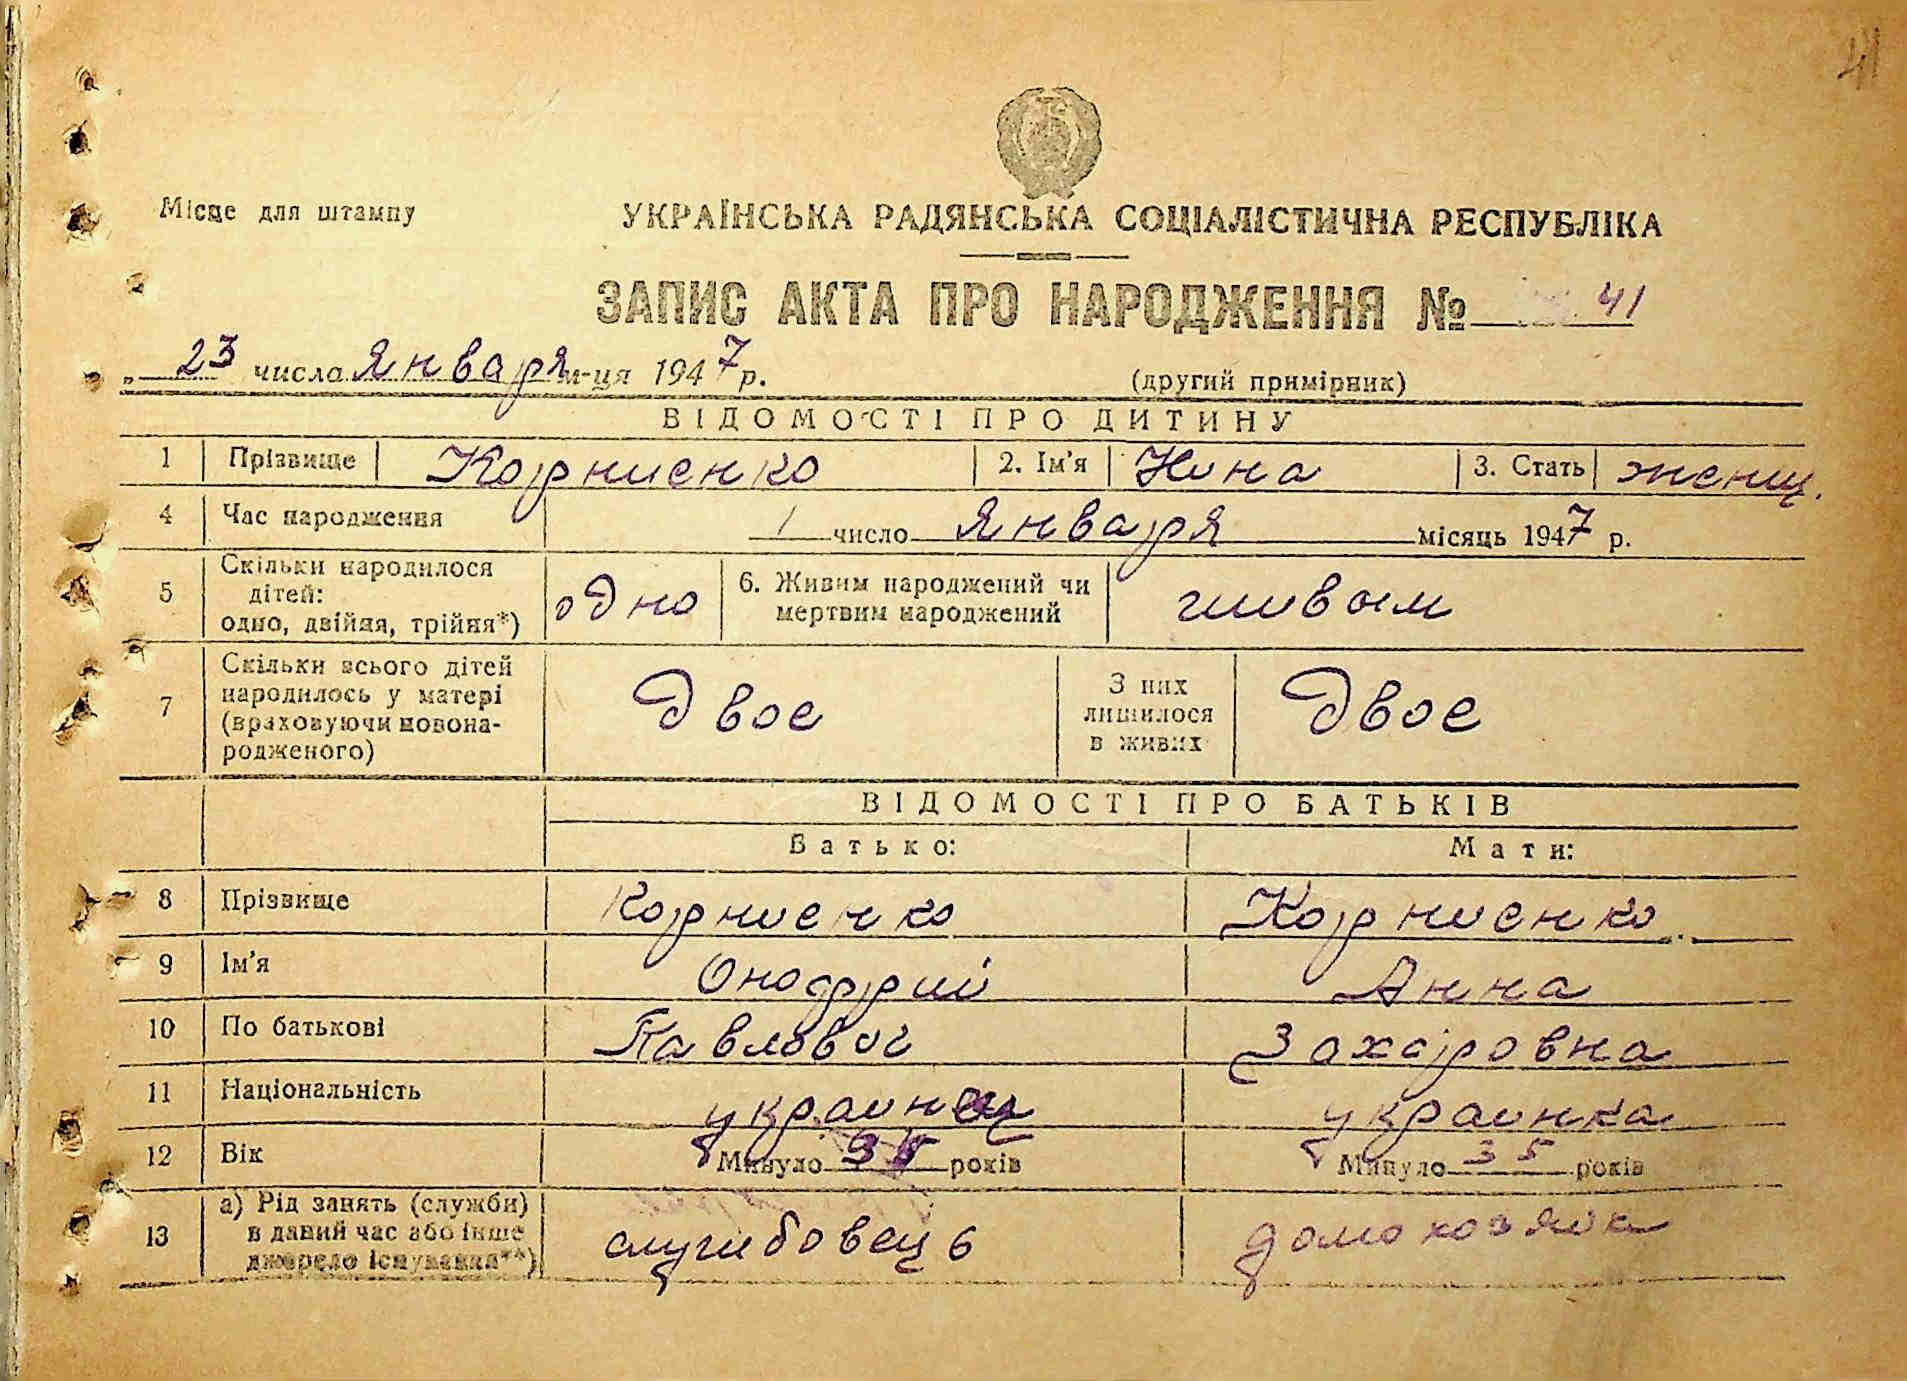 41
Місце для штампу
УКРАЇНСЬКА РАДЯНСЬКА СОЦІАЛІСТИЧНА РЕСПУБЛІКА
ЗАПИС АКТА ПРО НАРОДЖЕННЯ № 41
„ 23 числа Января м-ця 1947 р.
(другий примірник)
ВІДОМОСТІ ПРО ДИТИНУ
1 Прізвище Корниенко 2. Ім'я Нина 3. Стать женщ.
4 Час народження 1 число Января місяць 1947 р.
5 Скільки народилося дітей: одно, двійня, трійня*) одно 6. Живим народжений чи мертвим народжений живым
7 Скільки всього дітей народилось у матері (враховуючи новонародженого) Двое З них лишилося в живих Двое
ВІДОМОСТІ ПРО БАТЬКІВ
Батько: Мати:
8 Прізвище Корниенко Корниенко
9 Ім'я Онофрий Анна
10 По батькові Павлович Захаровна
11 Національність украинец украинка
12 Вік Минуло 35 років Минуло 35 років
13 а) Рід занять (служби) в даний час або інше джерело існування**) службовець домохозяйк